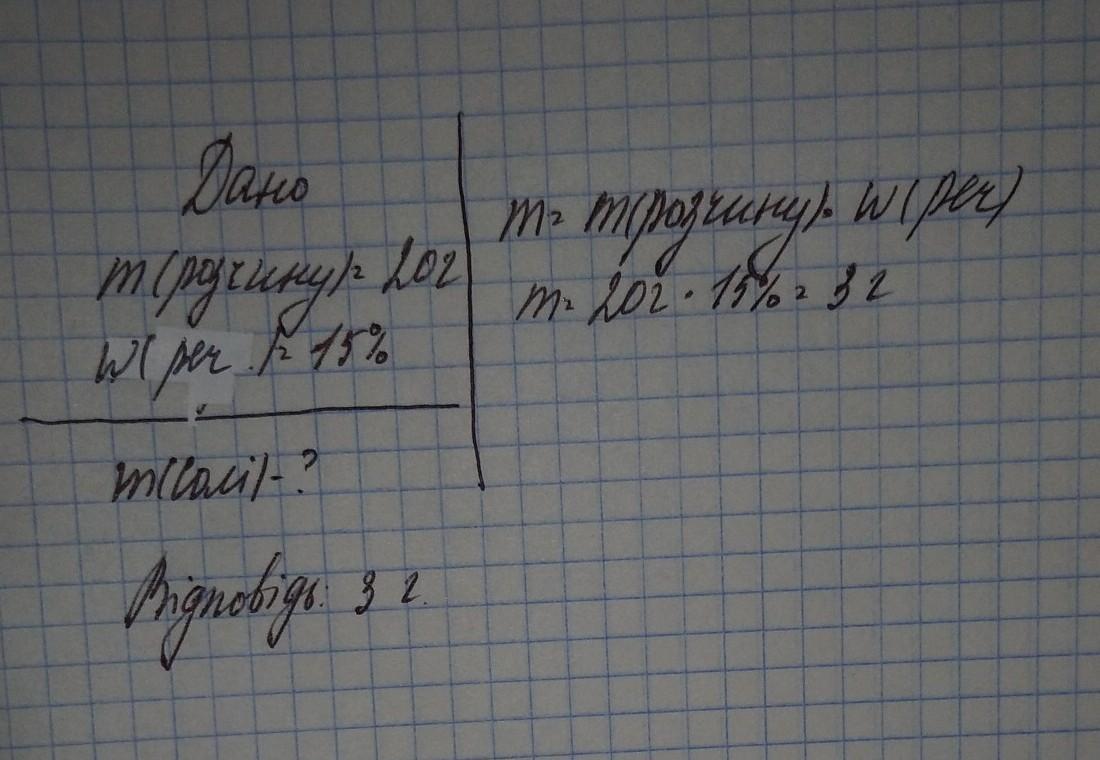 Дано
m(розчину)= 20г
w(реч.)= 15%
m(солі)-?
m= m(розчину)· w(реч)
m= 20г · 15% = 3 г
Відповідь: 3 г.